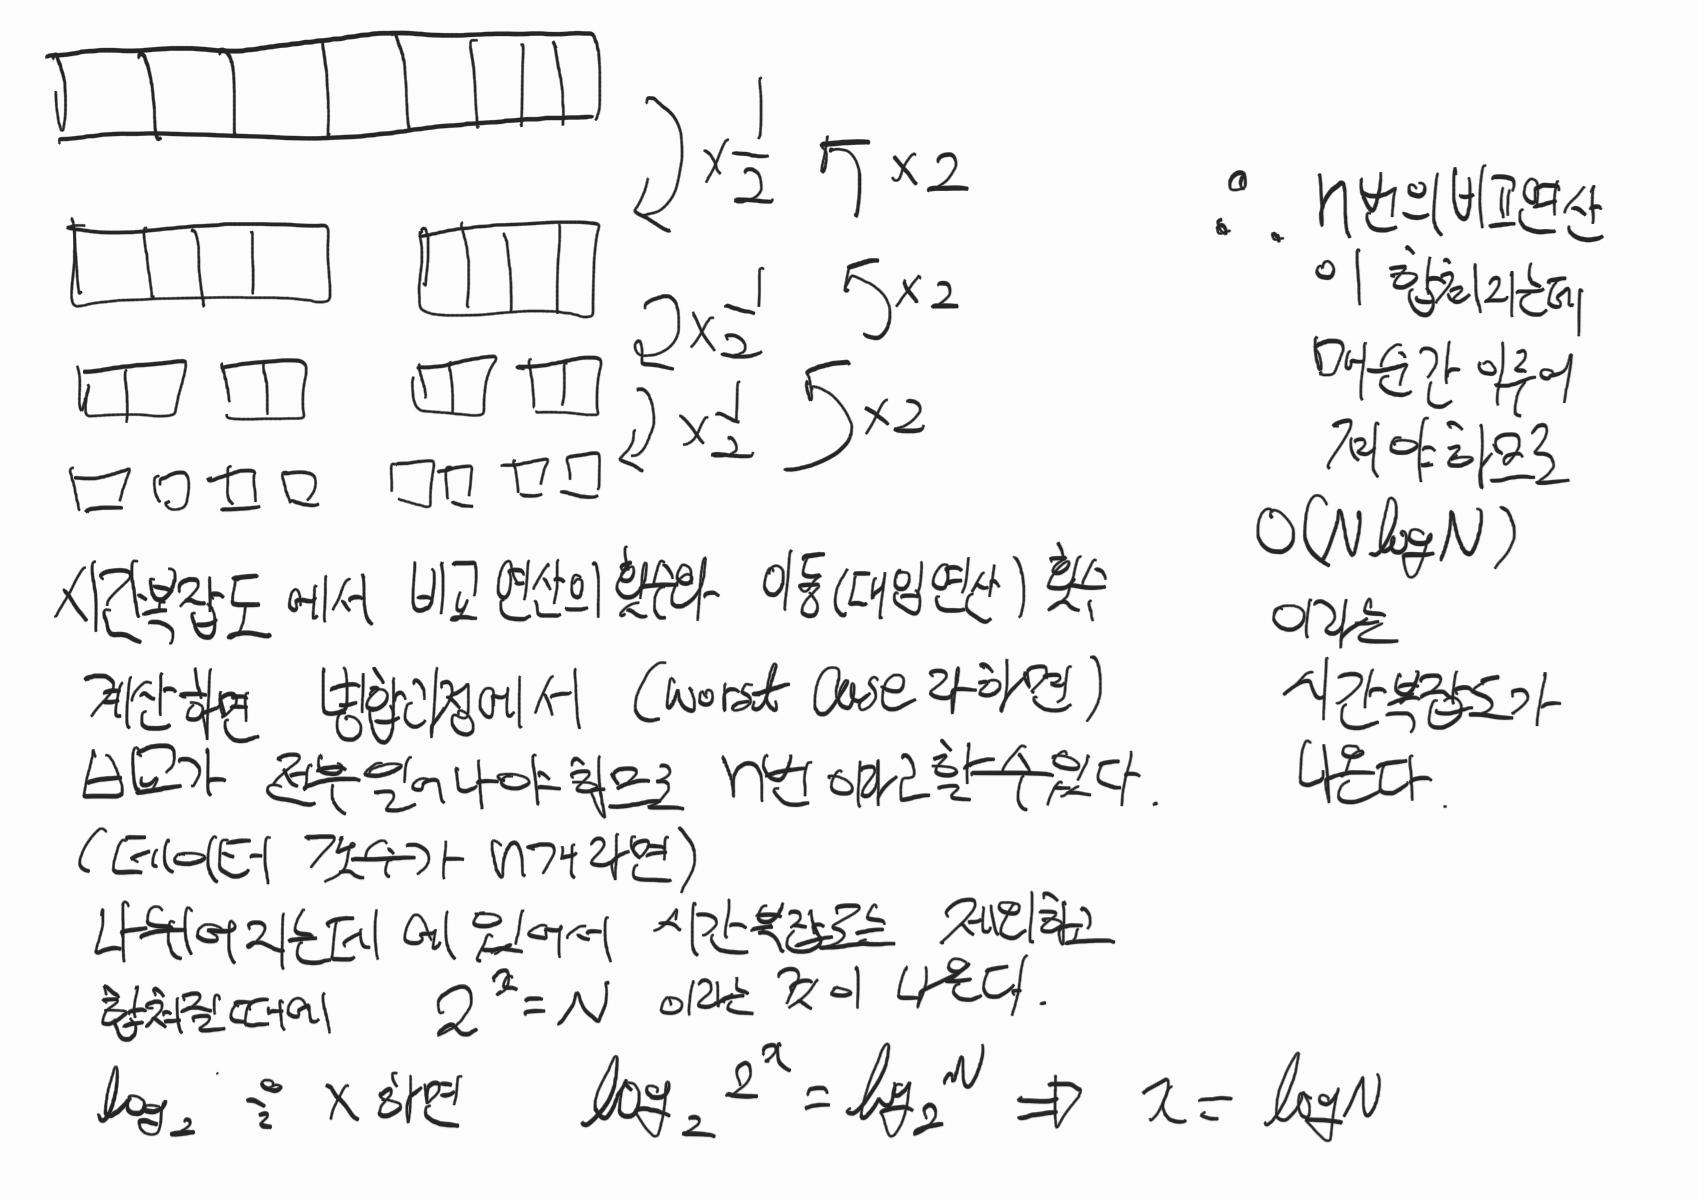 ×1/2 ×2
×1/2 ×2
×1/2 ×2
시간복잡도 에서 비교 연산의 횟수와 이동(대입연산) 횟수
계산하면 병합과정에서 (worst case 라하면)
비교가 전부 일어나야 함므로 n번 이라고 할 수 있다.
(데이터 갯수가 n개라면)
나뉘어지는데 에 있어서 시간복잡도는 제외하고
합쳐질때에 2^x = N 이라는 것이 나온다.
log₂ 을 × 하면 log₂ 2^x = log₂ N ⇒ x = logN
∴ n번의 비교연산
이 합쳐지는데
매순간 이루어
져야하므로
O(N log N)
이라는
시간복잡도가
나온다.